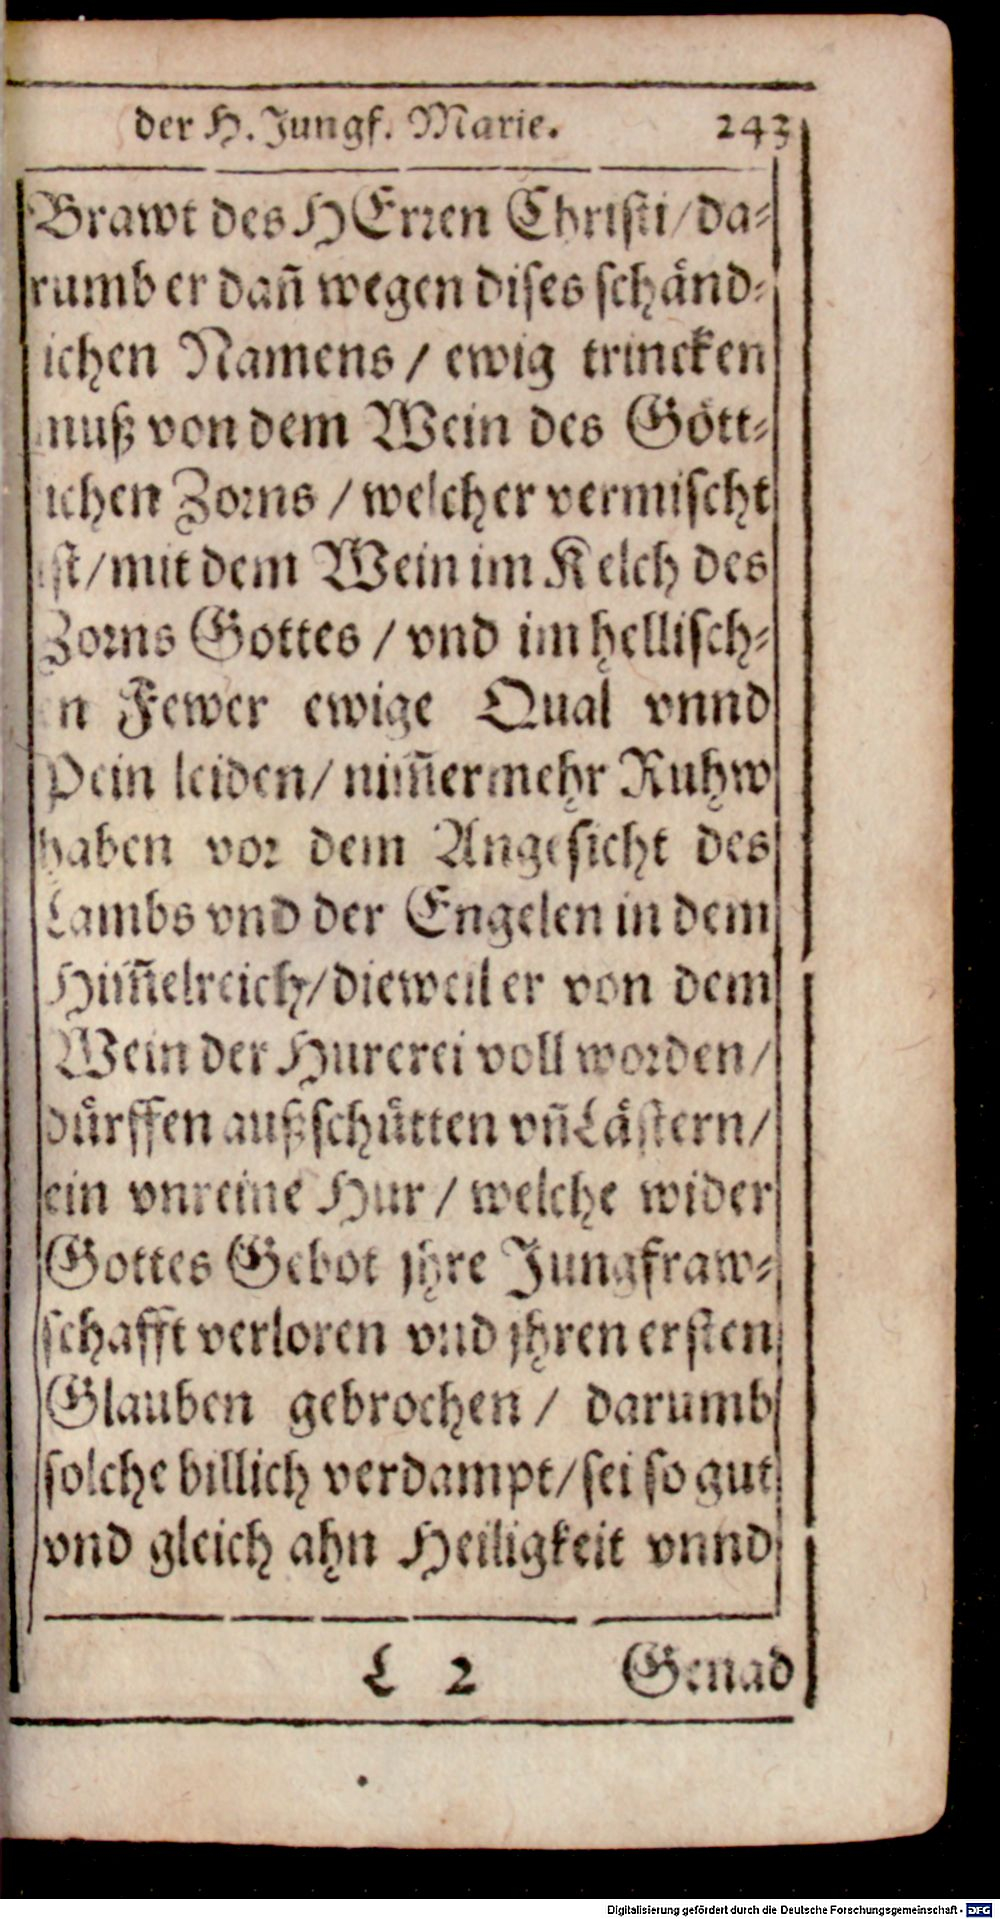 der H. Jungf. Marie. 243
Brawt des HErren Christi/da-
rumb er dañ wegen dises schänd-
ichen Namens / ewig trincken
nuß von dem Wein des Gött-
ichen Zorns / welcher vermischt
ist/mit dem Wein im Kelch des
Zorns Gottes / vnd im hellisch-
n Fewer ewige Qual vnnd
Pein leiden/ nim̃ermehr Ruhw
haben vor dem Angesicht des
Lambs vnd der Engelen in dem
Him̃elreich/dieweil er von dem
Wein der Hurerei voll worden/
dürffen außschütten vñ Lästern/
ein vnreine Hur / welche wider
Gottes Gebot jhre Jungfraw-
schafft verloren vnd jhren ersten
Glauben gebrochen / darumb
solche billich verdampt/sei so gut
vnd gleich ahn Heiligkeit vnnd
L 2 Genad
Digitalisierung gefördert durch die Deutsche Forschungsgemeinschaft - DFG